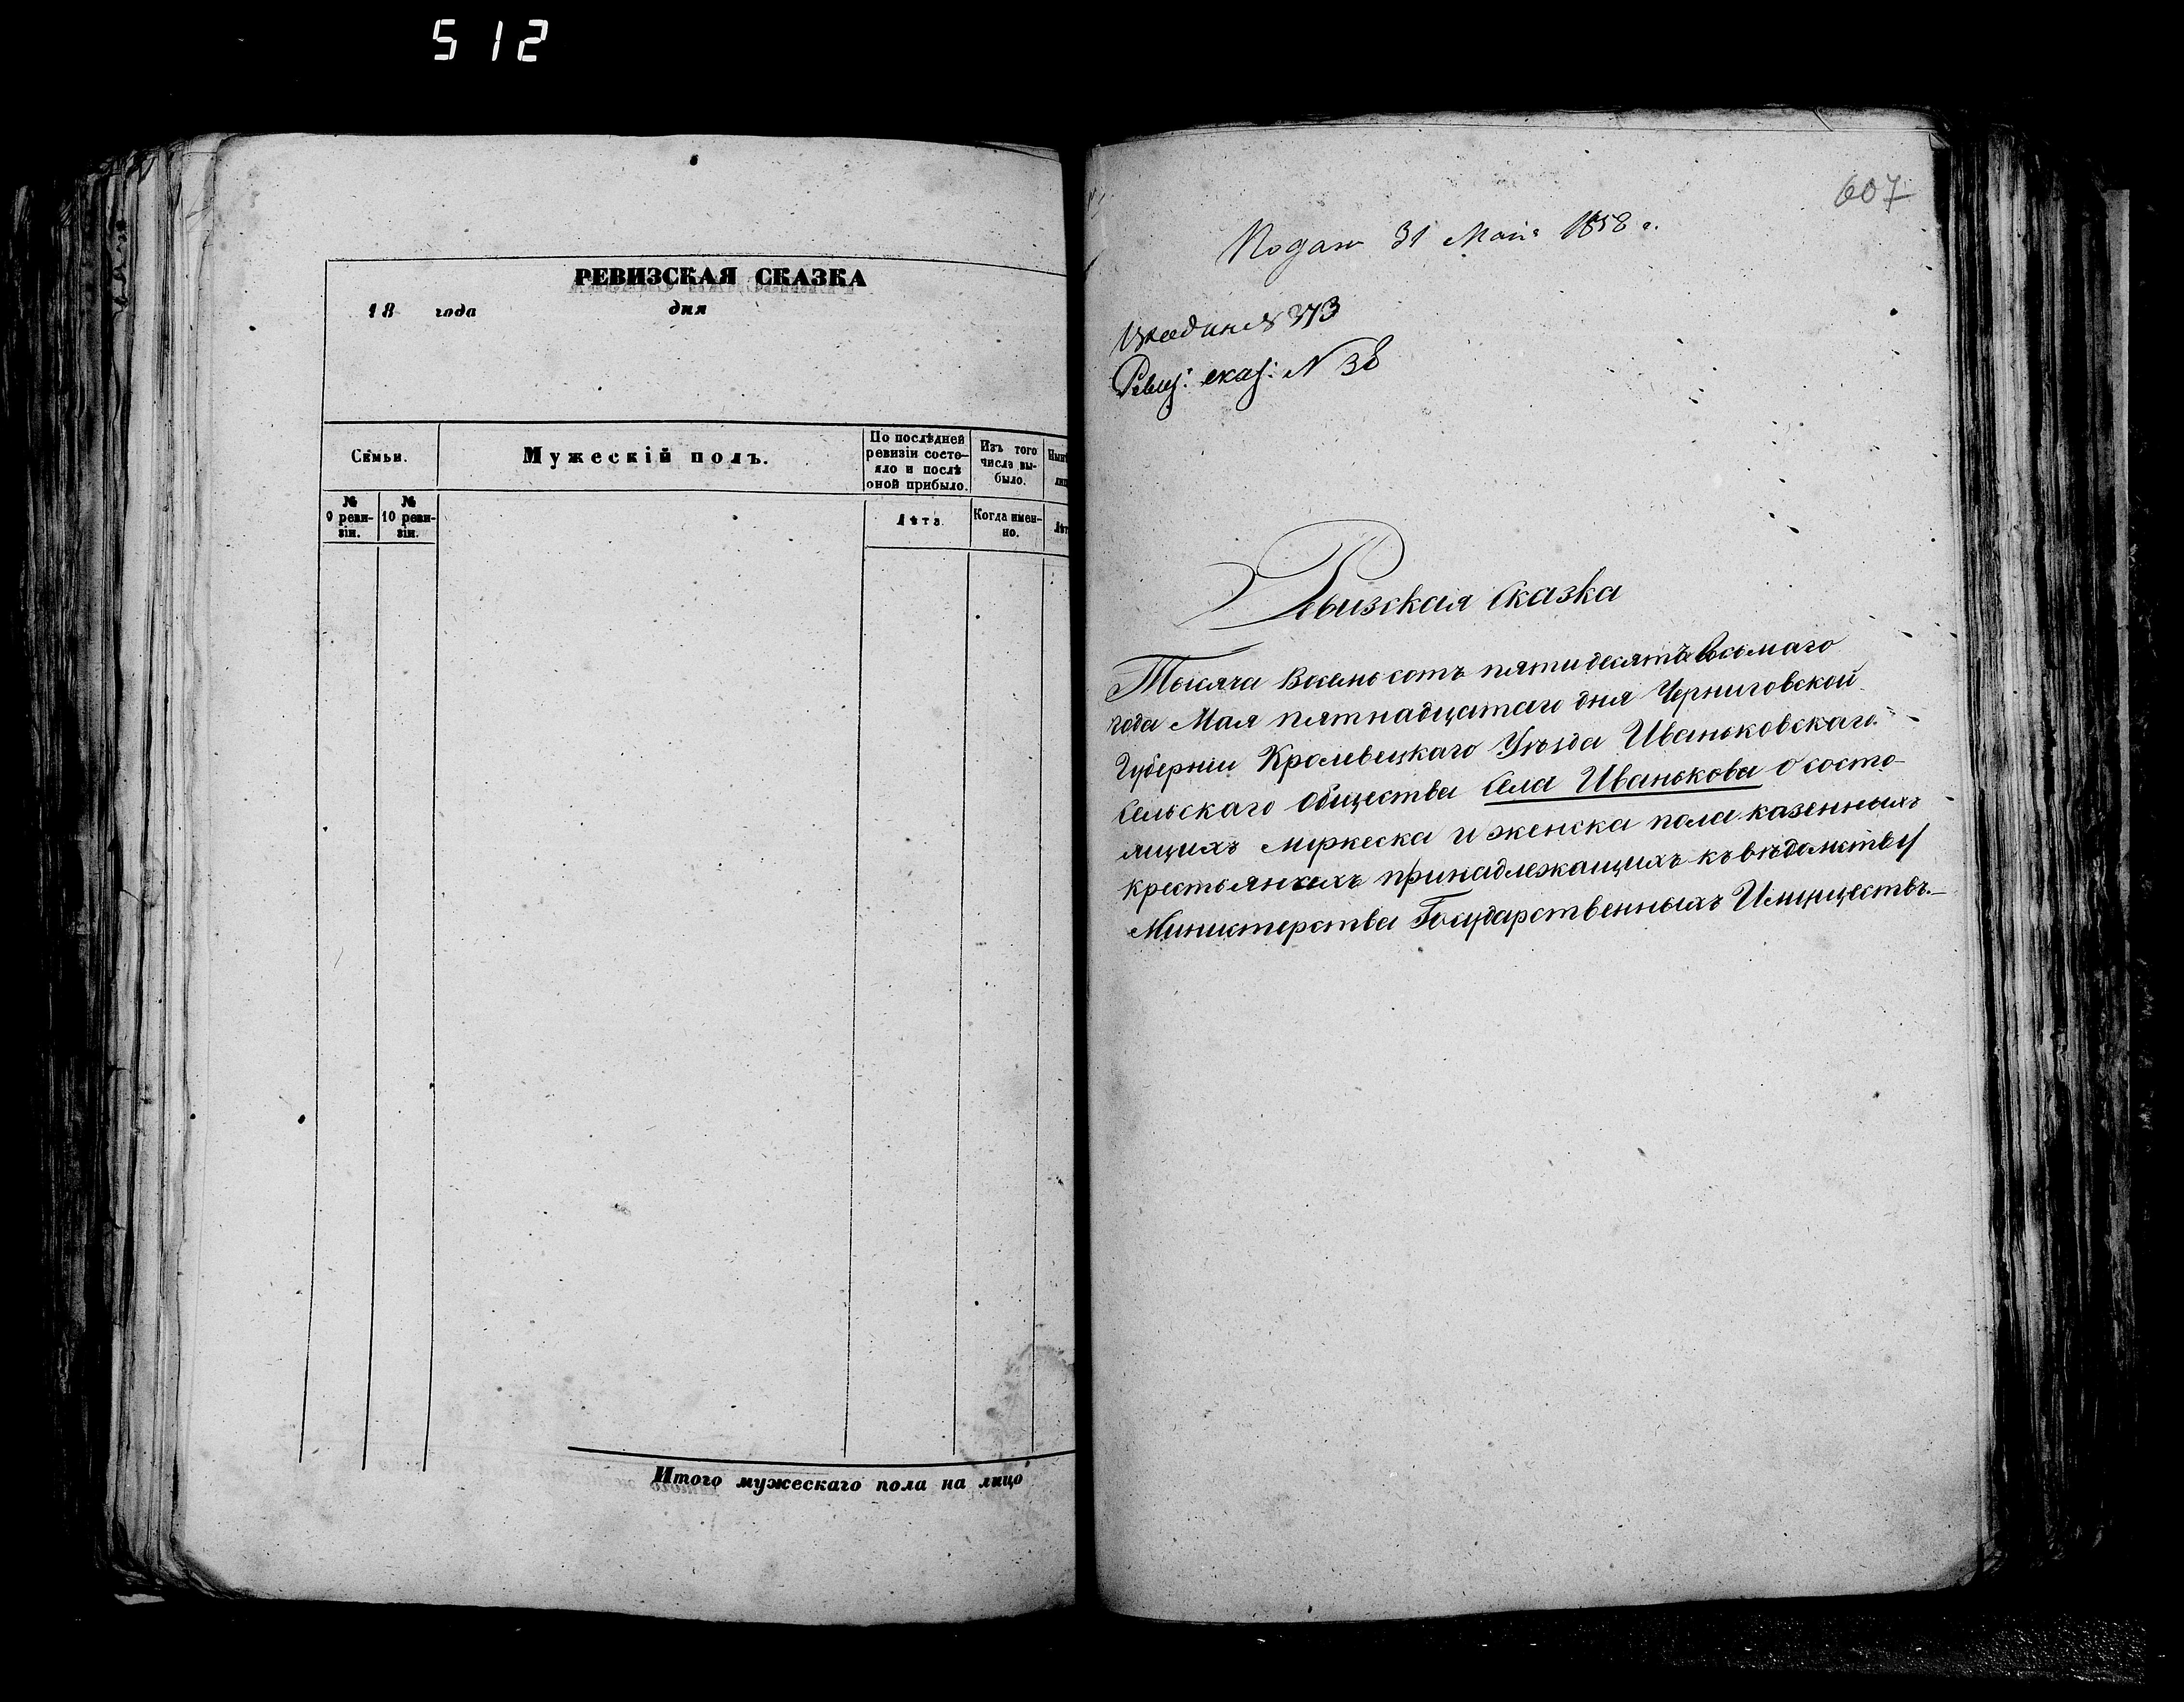 512
РЕВИЗСКАЯ СКАЗКА
18 года дня
Семьи.
Мужескій полъ.
По послѣдней
ревизіи состо-
яло и послѣ
оной прибыло.
Изъ того
числа вы-
было.
№
9 реви-
зіи.
№
10 реви-
зіи.
Лѣта.
Когда имен-
но.
Итого мужескаго пола на лицо
607
31 Мая 1858 г.
№ 373
Ревиз: сказ: N 38
Ревизская Сказка
Тысяча Восемьсотъ пятидесятъ Восьмаго
года Мая пятнадцатаго дня Черниговской
Губерніи Кролевецкаго Уѣзда Иваньковскаго
Сельскаго Общества Села Иванькова о состо-
ящихъ мужеска и женска пола казенныхъ
крестьянехъ принадлежащихъ къ вѣдомству
Министерства Государственныхъ Имуществъ.—